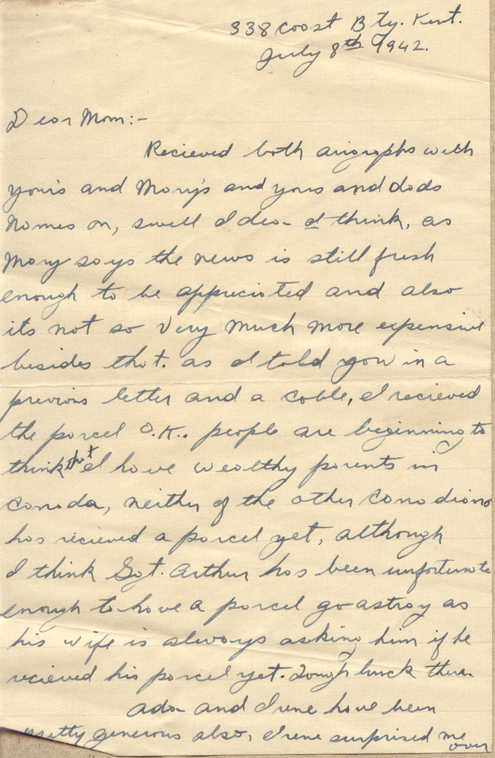 338 Coast Bty. Kent.
July 8th 1942.
Dear Mom:-
Recieved both airgraphs with
yours and Mary's and yours and dads
names on, swell idea I think, as
Mary says the news is still fresh
enough to be appreciated and also
its not so very much more expensive
besides that. as I told you in a
previous letter and a cable, I recieved
the parcel O.K.. people are beginning to
think that I have wealthy parents in
Canada, neither of the other Canadians
has recieved a parcel yet, although
I think Sgt. Arthur has been unfortunate
enough to have a parcel go astray as
his wife is always asking him if he
recieved his parcel yet. Tough luck there.
Ada and Irene have been
pretty generous also, Irene surprised me
over